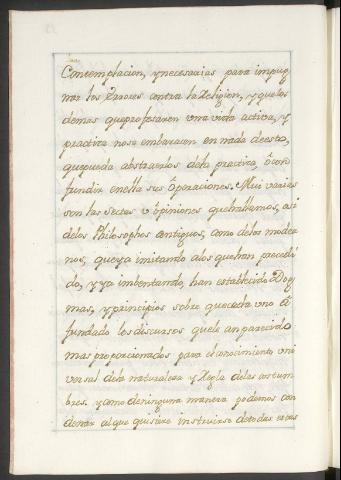 Contemplacion, y necesarias para impug
nar los Herrores contra la Religion, y que los
demas que profesaren una vida activa, y
practica no se embarazen en nada de esto,
que pueda abstraerlos de la practica, ô con
fundir en ella sus Ôperaciones. Mui varias
son las Sectas v ôpiniones que hallamos, asi
de los Philosophos Antiguos, como de los moder
nos, que ya imitando a los que han precedi
do, y ya imbentando, han establecido Dog
mas, y principios sobre que cada uno â
fundado los discursos que le an parecido
mas proporcionados para el conocimiento uni
versal de la naturaleza y Regla de las costum
bres. y como de ninguna manera podemos con
denar al que quisiere instruirse de todas estas